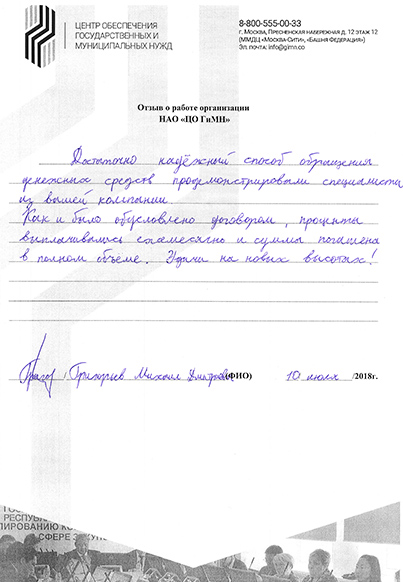 ЦЕНТР ОБЕСПЕЧЕНИЯ
ГОСУДАРСТВЕННЫХ И
МУНИЦИПАЛЬНЫХ НУЖД
8-800-555-00-33
г. Москва, Пресненская набережная д. 12 этаж 12
(ММДЦ «Москва-Сити», «Башня Федерация»)
Эл. почта: info@gimn.co
Отзыв о работе организации
НАО «ЦО ГиМН»
Достаточно надёжный способ обращения
денежных средств продемонстрировали специалисты
из вашей компании.
Как и было обусловлено договором, проценты
выплачивались ежемесячно и суммы погашена
в полном объеме. Удачи на новых высотах!
/ Григорьев Михаил Дмитриевич (ФИО) 10 июля /2018г.
РЕСПУБЛИ
СФЕРЕ ЗАКУП